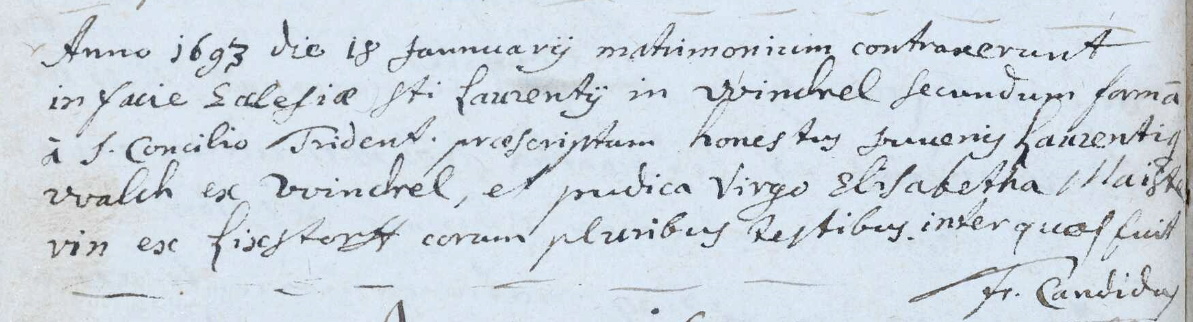 Anno 1693 die 18 Jannuarÿ matrimonium contraxerunt
in facie Eclesiæ sti Laurentÿ in Windrel secundum formā
à S. Concilio Trident. præscriptam honestus Juvenis Laurentiq
Walch ex Windrel, et pudica Virgo Elisabetha Maist
rin ex Lixstorff coram pluribus testibus inter quos fuit
Fr. Candidus